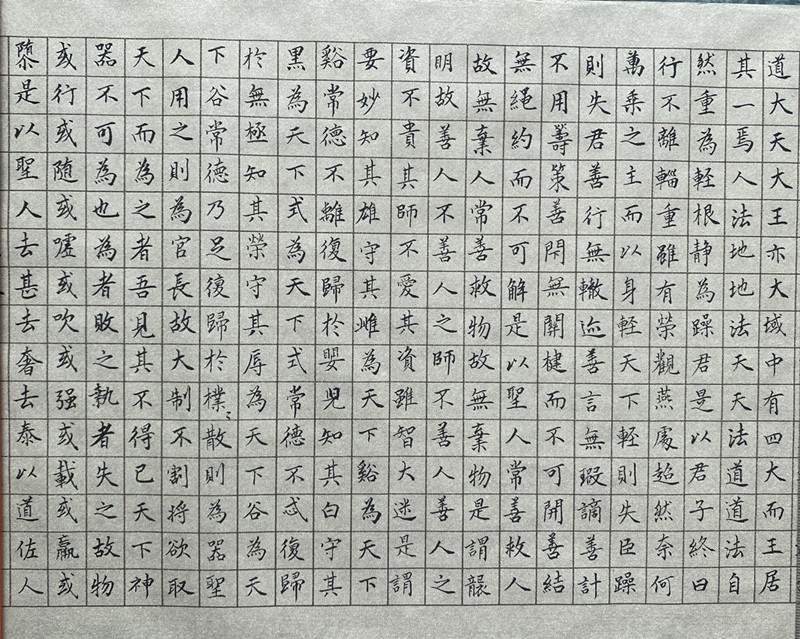 道大天大王亦大域中有四大而王居
其一焉人法地地法天天法道道法自
然重為輕根静為躁君是以君子終日
行不離輜重雖有榮觀燕處超然奈何
萬乘之主而以身輕天下輕則失臣躁
則失君善行無轍迹善言無瑕謫善計
不用籌策善閇無關楗而不可開善結
無繩約而不可解是以聖人常善救人
故無棄人常善救物故無棄物是謂襲
明故善人不善人之師不善人善人之
資不貴其師不愛其資雖智大迷是謂
要妙知其雄守其雌為天下谿為天下
谿常德不離復歸於嬰兒知其白守其
黑為天下式為天下式常德不忒復歸
於無極知其榮守其辱為天下谷為天
下谷常德乃足復歸於樸〻散則為器聖
人用之則為官長故大制不割將欲取
天下而為之者吾見其不得已天下神
器不可為也為者敗之執者失之故物
或行或随或噓或吹或强或載或羸或
隳是以聖人去甚去奢去泰以道佐人